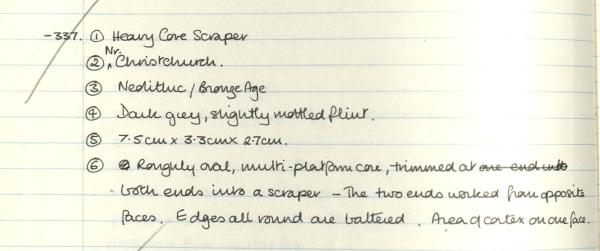 -337. ① Heavy Core Scraper
② Nr. Christchurch.
③ Neolithic / Bronze Age
④ Dark grey, slightly mottled flint.
⑤ 7.5cm x 3.3cm x 2.7cm.
⑥ Roughly oval, multi-platform core, trimmed at one end into
both ends into a scraper - The two ends worked from opposite
faces. Edges all round are battered. Area of cortex on one face.